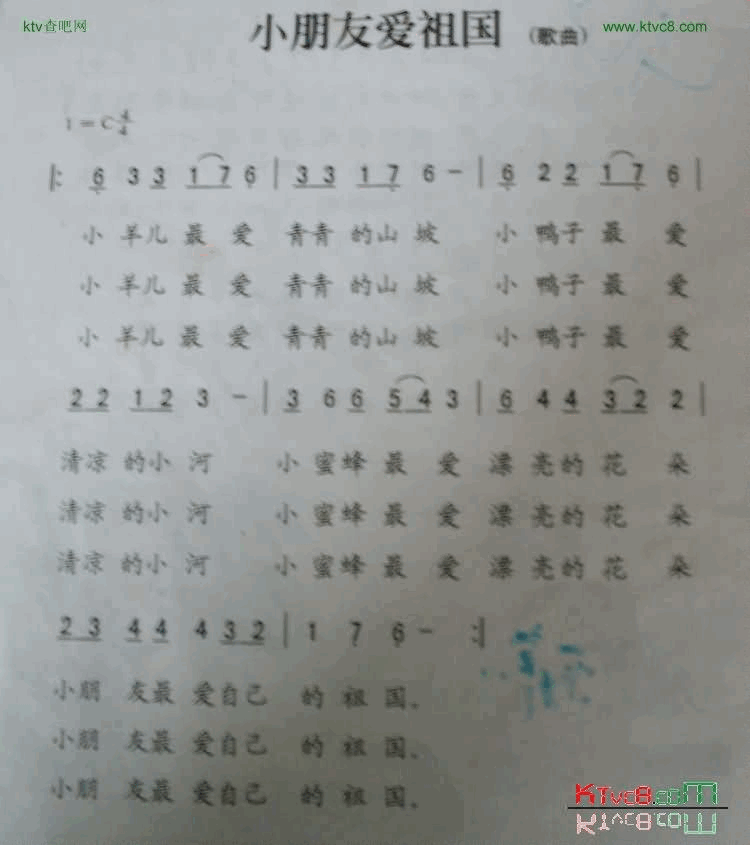 ktv查吧网
小朋友爱祖国 (歌曲)
www.ktvc8.com
1=C 4/4
|: 6 3 3 1 7 6 | 3 3 1 7 6 - | 6 2 2 1 7 6 |
小 羊儿 最 爱 青青 的山 坡 小 鸭子 最 爱
小 羊儿 最 爱 青青 的山 坡 小 鸭子 最 爱
小 羊儿 最 爱 青青 的山 坡 小 鸭子 最 爱
2 2 1 2 3 - | 3 6 6 5 4 3 | 6 4 4 3 2 2 |
清凉 的小 河 小 蜜蜂 最 爱 漂 亮的 花 朵
清凉 的小 河 小 蜜蜂 最 爱 漂 亮的 花 朵
清凉 的小 河 小 蜜蜂 最 爱 漂 亮的 花 朵
2 3 4 4 4 3 2 | 1 7 6 - :|
小朋 友最 爱自己 的 祖 国.
小朋 友最 爱自己 的 祖 国.
小朋 友最 爱自己 的 祖 国.
KTvc8.com